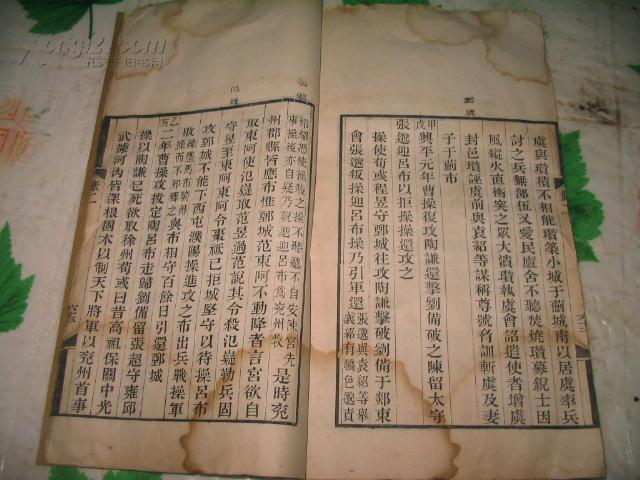 劉虞
虞與瓚積不相能瓚築小城于薊城南以居虞率兵
討之兵無部伍又愛民廬舍不聽焚燒瓚募銳士因
風縱火直衝突之眾大潰瓚執虞會詔遣使者增虞
封邑瓚誣虞前與袁紹等謀稱尊號脅訓斬虞及妻
子于薊市
甲戌
興平元年曹操復攻陶謙還擊劉備破之陳留太守
張邈迎呂布以拒操操還攻之
操使荀彧程昱守鄄城往攻陶謙擊破劉備于郯東
會張邈叛操迎呂布操乃引軍還
張邈與袁紹等舉
義紹有驕色邈責
氾嶷
紹紹恐使操殺之操不聽邈不自安陳宮先
事操後亦自疑乃說邈迎呂布為兗州牧
是時兗
州郡縣皆應布惟鄄城范東阿不動降者言宮欲自
取東阿使氾嶷取范昱過范說其令殺氾嶷勒兵固
守昱至東阿東阿令棗祗已拒城堅守以待操呂布
攻鄄城不能下西屯濮陽操進攻之布出兵戰操軍
敗操墜馬布騎得
操而不知釋之
與布相守百餘日引還鄄城
乙亥
二年曹操攻拔定陶呂布走歸劉備留張超守雍邱
操以陶謙已死欲取徐州荀彧曰昔高祖保關中光
武據河內皆深根固本以制天下將軍以兗州首事
卷二